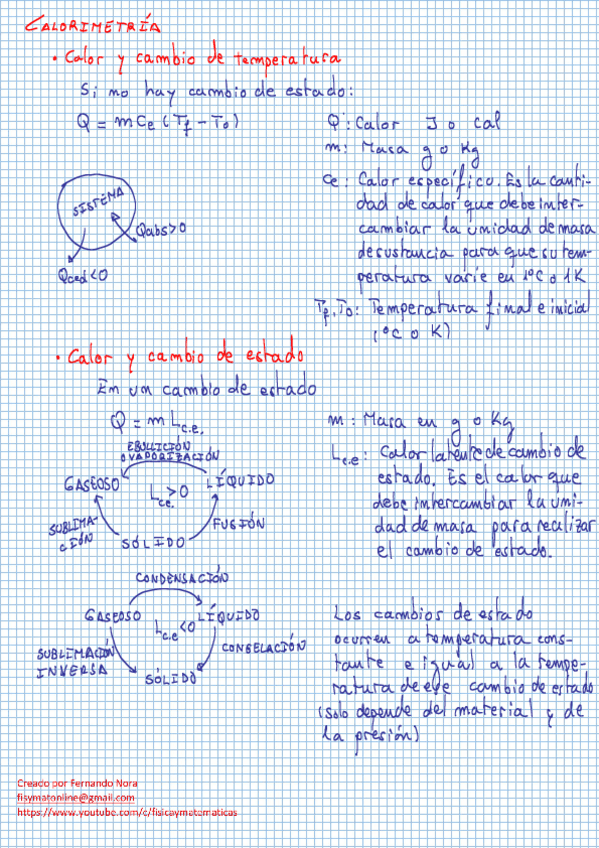 CALORIMETRÍA
· Calor y cambio de temperatura
Si no hay cambio de estado:
Q = m Ce (Tf - To)
Q: Calor J o cal
m: Masa g o Kg
Ce: Calor específico. Es la canti-
dad de calor que debe inter-
cambiar la unidad de masa
de sustancia para que su tem-
peratura varíe en 1ºC o 1K
Tf, To: Temperatura final e inicial
(ºC o K)
SISTEMA
Qabs>0
Qced<0
· Calor y cambio de estado
En un cambio de estado
Q = m Lc.e.
m: Masa en g o Kg
Lc.e: Calor latente de cambio de
estado. Es el calor que
debe intercambiar la uni-
dad de masa para realizar
el cambio de estado.
EBULLICIÓN
O VAPORIZACIÓN
GASEOSO
LÍQUIDO
Lc.e.>0
SUBLIMA-
CIÓN
SÓLIDO
FUSIÓN
CONDENSACIÓN
GASEOSO
LÍQUIDO
Lc.e<0
SUBLIMACIÓN
INVERSA
SÓLIDO
CONGELACIÓN
Los cambios de estado
ocurren a temperatura cons-
tante e igual a la tempe-
ratura de ese cambio de estado
(Solo depende del material y de
la presión)
Creado por Fernando Nora
fisymatonline@gmail.com
https://www.youtube.com/c/fisicaymatematicas